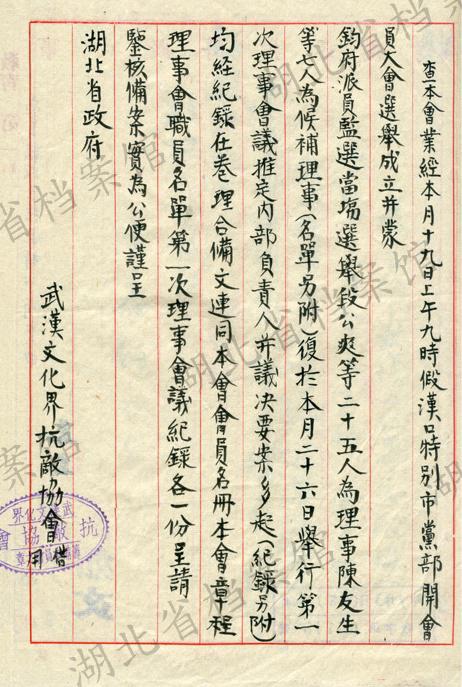 查本會業經本月十九日上午九時假漢口特別市黨部開會
員大會選舉成立并蒙
鈞府派員監選當場選舉段公爽等二十五人為理事陳友生
等七人為候補理事(名單另附)復於本月二十六日舉行第一
次理事會議推定內部負責人并議決要案多起(紀錄另附)
均經紀錄在卷理合備文連同本會會員名冊本會章程
理事會職員名單第一次理事會議紀錄各一份呈請
鑒核備案實為公便謹呈
湖北省政府
武漢文化界抗敵協會借用
武漢文化界
抗敵協會
湖北省档案馆
湖北省档案馆
湖北省档案馆